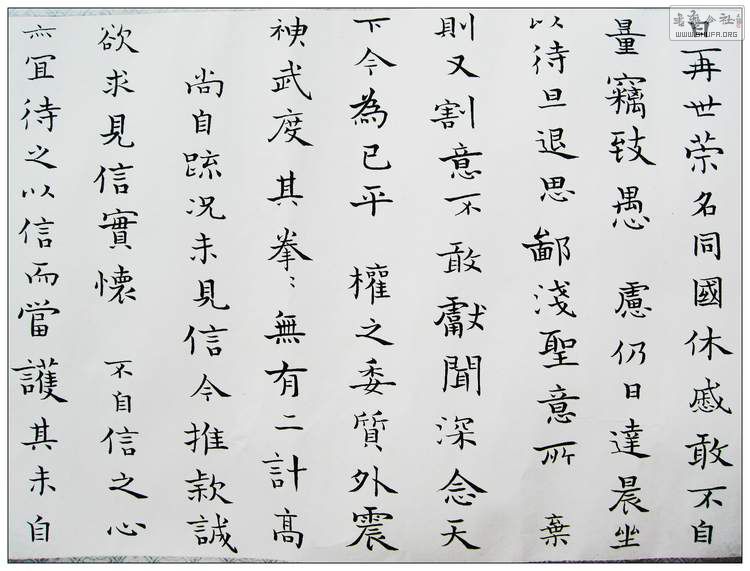 日再世荣名同國休慼敢不自
量竊致愚 慮仍日達晨坐
以待旦退思鄙淺聖意所 棄
則又割意不敢獻聞深念天
下今為已平 權之委質外震
神武度其拳〻無有二計高
尚自疏況未見信今推款誠
欲求見信實懷 不自信之心
亦冝待之以信而當護其未自
书艺公社
WWW.SHUFA.ORG